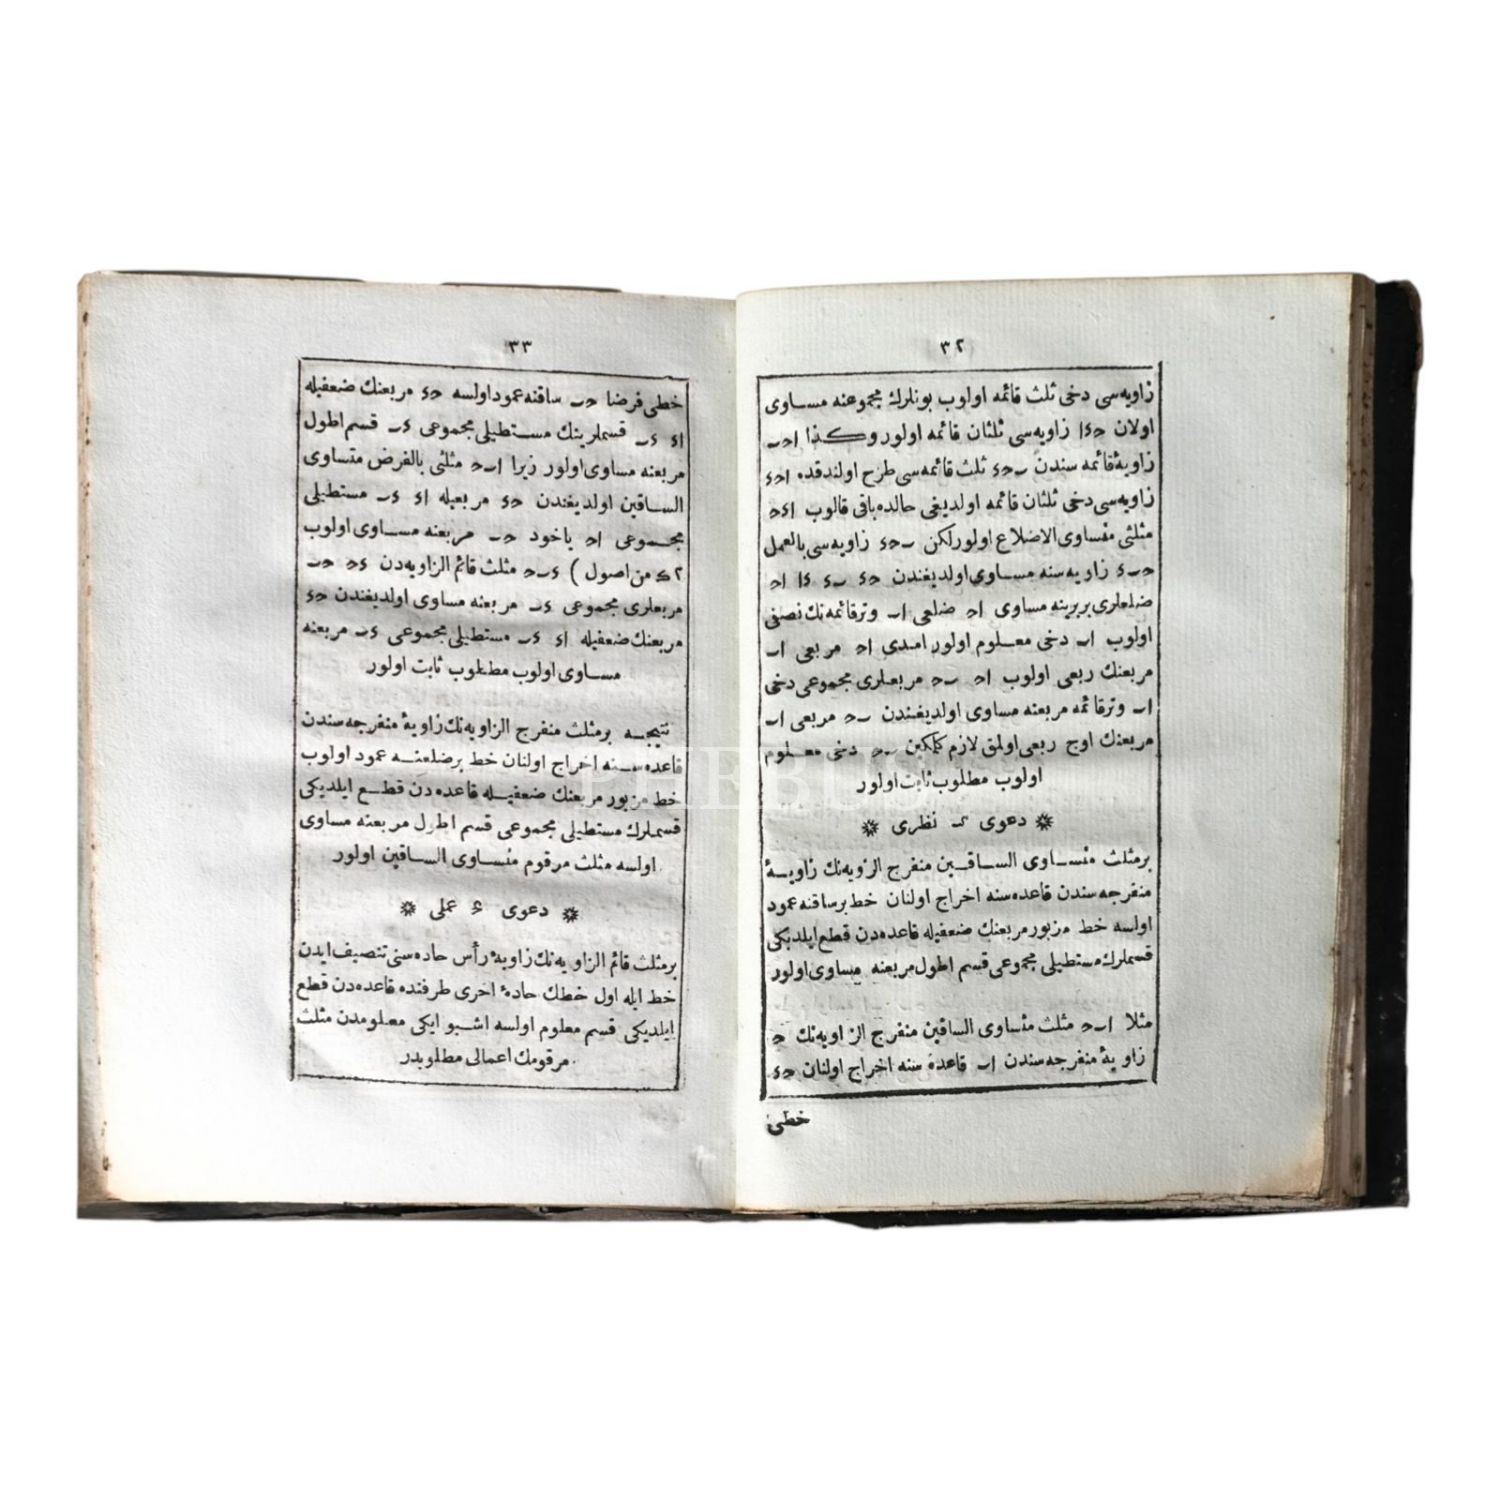 ٣٢
زاویه‌سی دخی ثلث قائمه اولوب بونلرك مجموعنه مساوی
اولان ح١٤ زاویه‌سی ثلثان قائمه اولور وكذا اح‍ـ
زاویهٔ قائمه سندن ـح٤ ثلث قائمه‌سی طرح اولندقده اح٤
زاویه‌سی دخی ثلثان قائمه اولدیغی حالده باقی قالوب ا٤ح
مثلثی متساوی الاضلاع اولور لكن ـح٤ زاویه‌سی بالعمل
ح‍ـ٤ زاویه‌سنه مساوی اولدیغندن ح٤ ـ٤ ا٤ اح
ضلعلری بربرینه مساوی اح ضلعی اـ وتر قائمه‌نك نصفی
اولوب اـ دخی معلوم اولور امدی اح مربعی اـ
مربعنك ربعی اولوب اح ـح مربعلری مجموعی دخی
اـ وتر قائمه مربعنه مساوی اولدیغندن ـح مربعی اـ
مربعنك اوچ ربعی اولمق لازم كلمكین ـح دخی معلوم
اولوب مطلوب ثابت اولور
دعوی نظری
بر مثلث متساوی الساقین منفرج الزویه‌نك زاویهٔ
منفرجه سندن قاعده‌سنه اخراج اولنان خط بر ساقنه عمود
اولسه خط مزبور مربعنك ضعفیله قاعده‌دن قطع ایلدیكی
قسملرك مستطیلی مجموعی قسم اطول مربعنه مساوی اولور
مثلا اـح مثلث متساوی الساقین منفرج الزاویه‌نك ح
زاویهٔ منفرجه سندن اـ قاعده سنه اخراج اولنان ح٤
خطی
٣٣
خطی فرضا ح‍ـ ساقنه عمود اولسه ح٤ مربعنك ضعفیله
ا٤ ٤ـ قسملرینك مستطیلی مجموعی ٤ـ قسم اطول
مربعنه مساوی اولور زیرا اـح مثلثی بالفرض متساوی
الساقین اولدیغندن ح٤ مربعیله ا٤ ٤ـ مستطیلی
مجموعی اح یاخود ح‍ـ مربعنه مساوی اولوب
من اصول ) ٤ـح مثلث قائم الزاویه‌دن ٤ح ح‍ـ
مربعلری مجموعی ٤ـ مربعنه مساوی اولدیغندن ح٤
مربعنك ضعفیله ا٤ ٤ـ مستطیلی مجموعی ٤ـ مربعنه
مساوی اولوب مطلوب ثابت اولور
نتیجه بر مثلث منفرج الزاویه‌نك زاویهٔ منفرجه سندن
قاعده سنه اخراج اولنان خط بر ضلعنه عمود اولوب
خط مزبور مربعنك ضعفیله قاعده دن قطع ایلدیكی
قسملرك مستطیلی مجموعی قسم اطول مربعنه مساوی
اولسه مثلث مرقوم متساوی الساقین اولور
دعوی ٤ عملی
بر مثلث قائم الزاویه‌نك زاویهٔ رأس حاده سنی تنصیف ایدن
خط ایله اول خطك حادهٔ اخری طرفنده قاعده دن قطع
ایلدیكی قسم معلوم اولسه اشبو ایكی معلومدن مثلث
مرقومك اعمالی مطلوبدر
PHEBUS